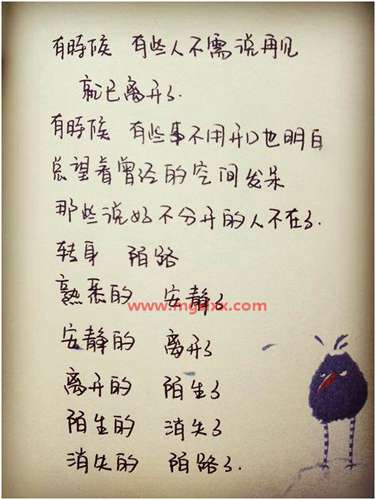 有時候 有些人不需说再见
就已离开了.
有時候 有些事不用开口也明白
总望着曾经的空间发呆
那些说好不分开的人不在了.
转身 陌路
熟悉的 安静了
www.mgxxx.com
安静的 离开了
离开的 陌生了
陌生的 消失了
消失的 陌路了.